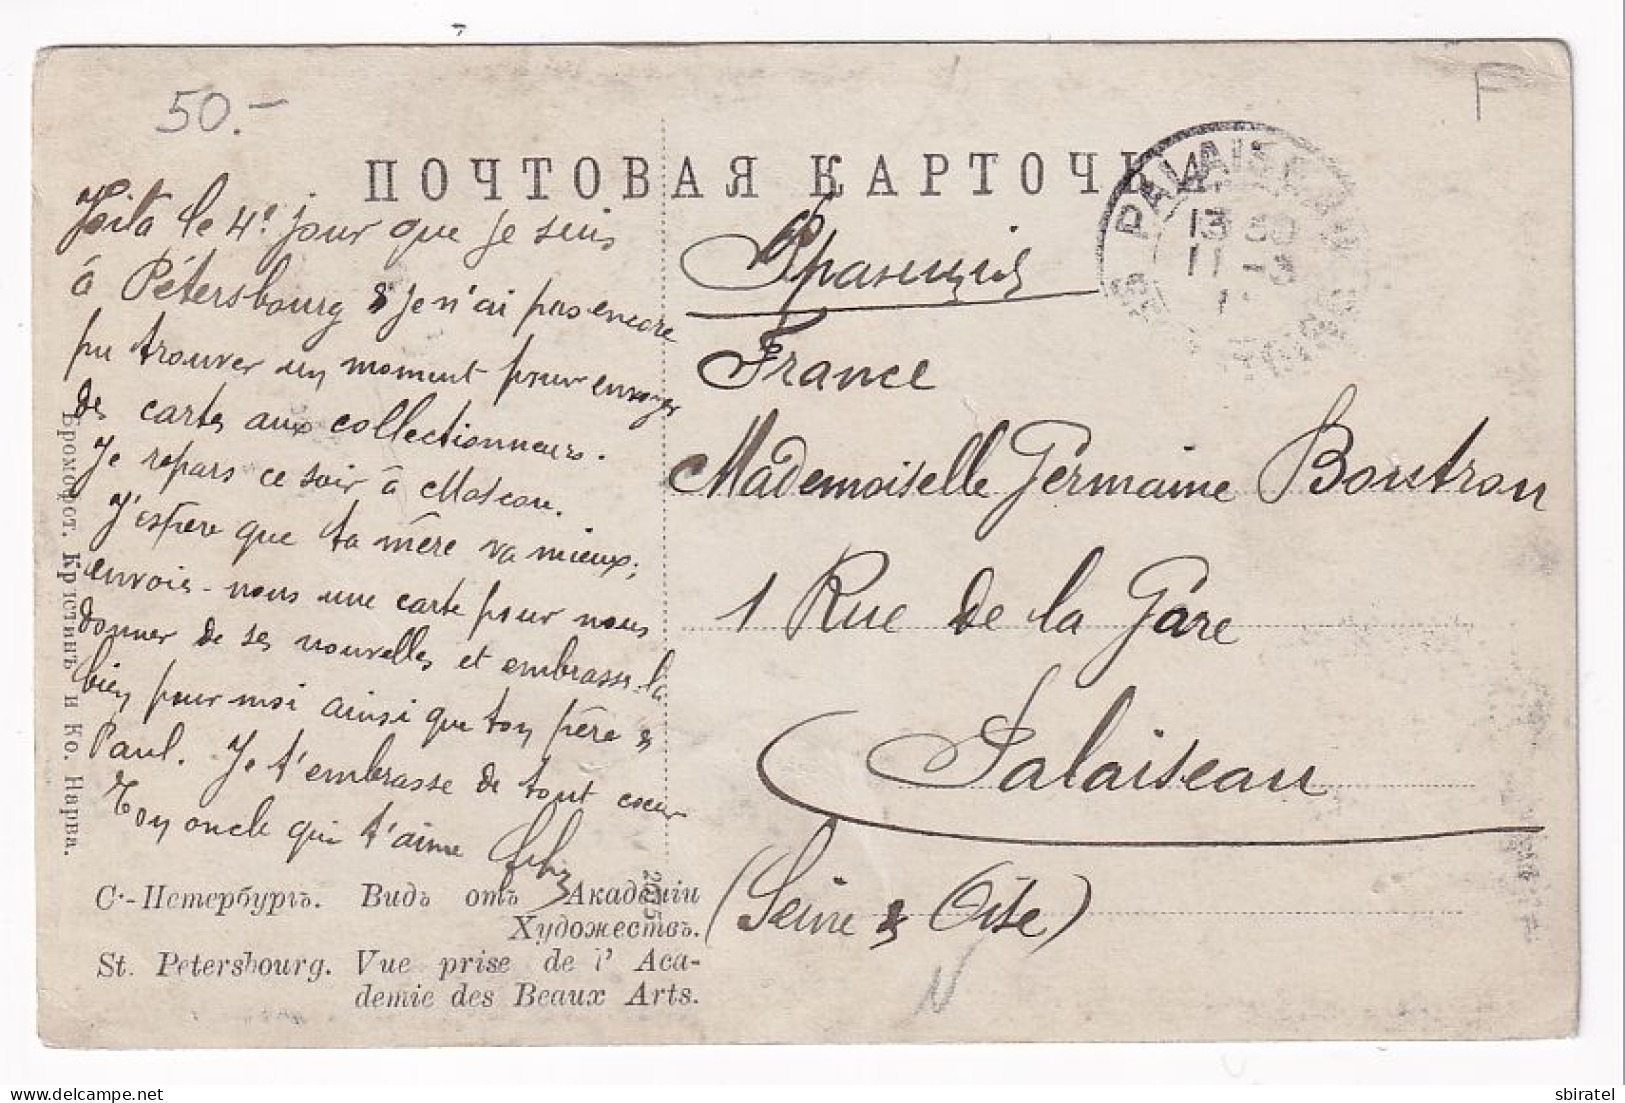 50.-
F
ПОЧТОВАЯ КАРТОЧКА.
PALAISEAU
13 30
11 -3
Voilà le 4e jour que je suis
à Pétersbourg & je n'ai pas encore
pu trouver un moment pour envoyer
des cartes aux collectionneurs.
Je repars ce soir à Moscou.
J'espère que ta mère va mieux;
envois-nous une carte pour nous
donner de ses nouvelles et embrasse-la
bien pour moi ainsi que ton père &
Paul. Je t'embrasse de tout cœur
Ton oncle qui t'aime
Франція
France
Mademoiselle Germaine Boutron
1 Rue de la Gare
Palaiseau
(Seine & Oise)
Бромофот. Кристинъ и Ко. Нарва.
С.-Петербургъ. Видъ отъ Академіи
Художествъ.
St. Petersbourg. Vue prise de l' Aca-
demie des Beaux Arts.
sbiratel